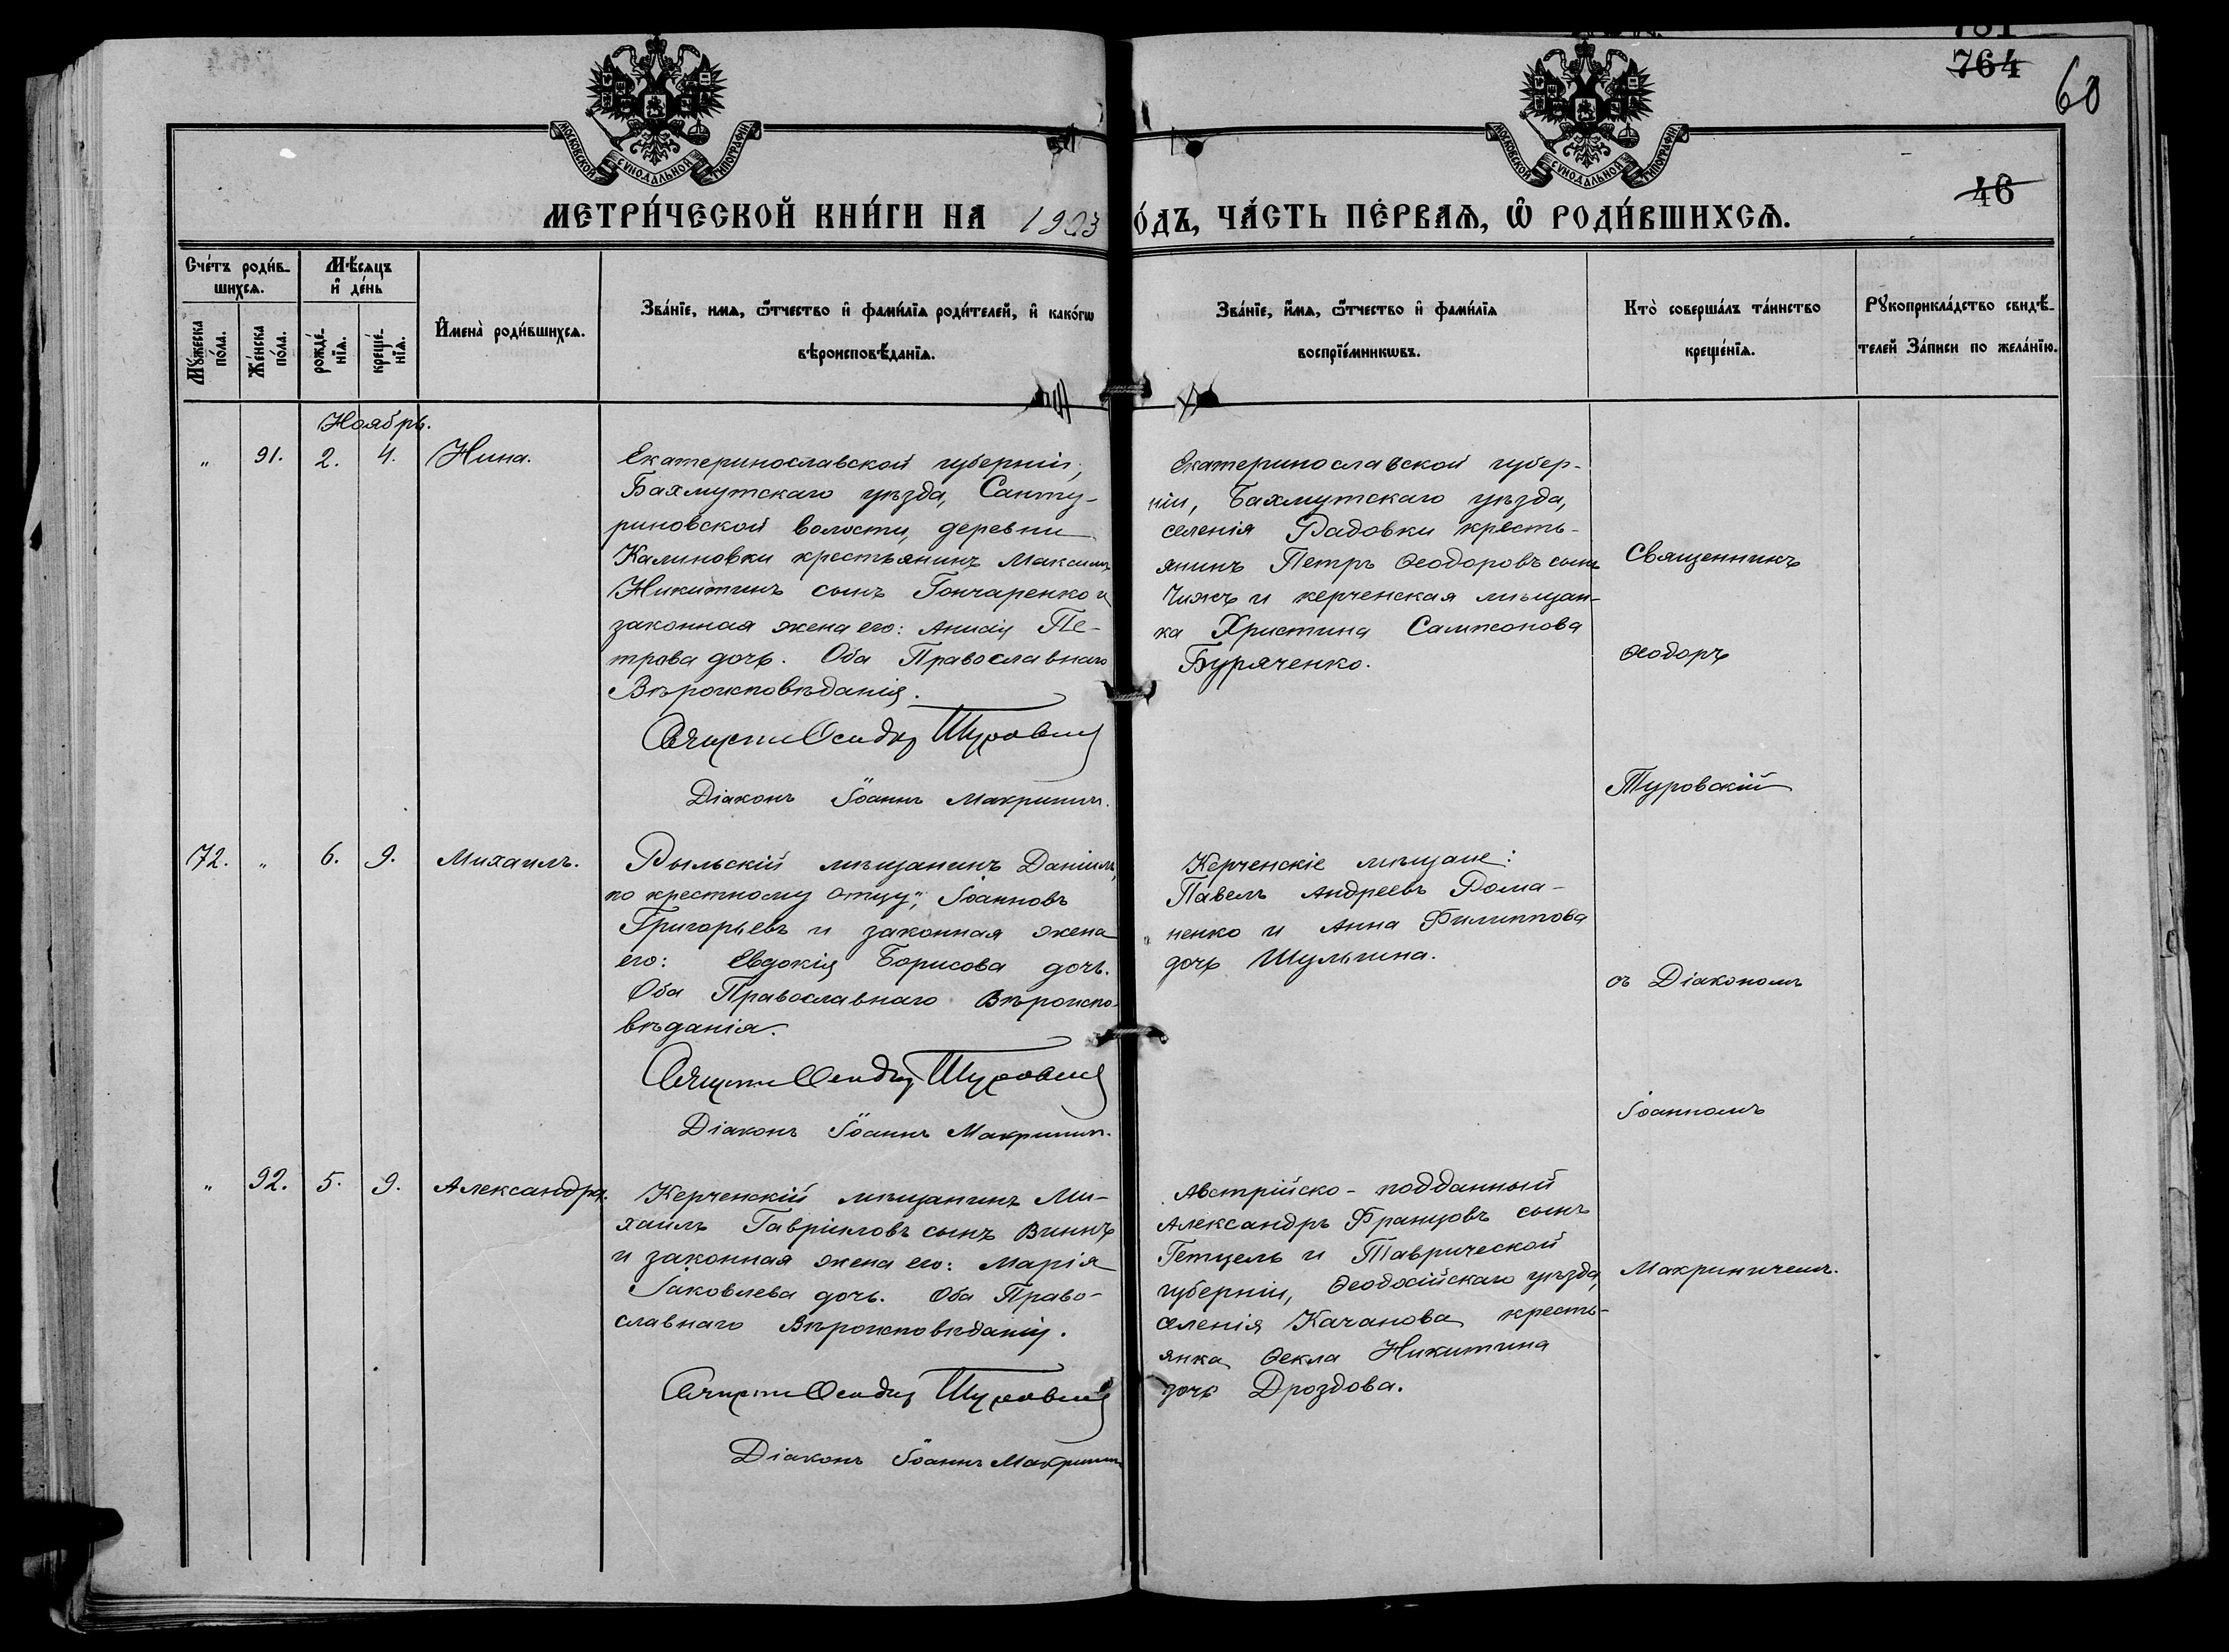 781
764
60
МОСКОВСКОЙ СѴНОДАЛЬНОЙ ТИПОГРАФІИ
МОСКОВСКОЙ СѴНОДАЛЬНОЙ ТИПОГРАФІИ
46
МЕТРИ́ЧЕСКОЙ КНИ́ГИ НА 1903 О́ДЪ, ЧА́СТЬ ПЕ́РВАѦ, Ѿ РОДИ́ВШИХСѦ.
Сче́тъ роди́в-
шихсѧ.
Мꙋжеска пола.
Же́нска по́ла.
Мѣ́сяцъ
и҆ де́нь
рожде́нїѧ.
креще́нїѧ.
И҆мена̀ роди́вшихсѧ.
Зва́нїе, имѧ, ѻ҆́тчество и҆ фами́лїѧ роди́телей, и҆ како́гѡ
вѣроисповѣ́данїѧ.
Зва́нїе, и҆́мѧ, ѻ҆́тчество и҆ фами́лїѧ
воспрїе́мникѡвъ.
Кто̀ соверша́лъ та́инство
креще́нїѧ.
Рꙋкоприкла́дство свидѣ́-
телей За́писи по жела́нїю.
Ноябрь.
" 91. 2. 4. Нина.
Екатеринославской губерніи,
Бахмутскаго уѣзда, Санту-
риновской волости, деревни
Калиновки крестьянинъ Максимъ
Никитинъ сынъ Гончаренко и
законная жена его: Анисія Пе-
трова дочь. Оба Православнаго
Вѣроисповѣданія.
Священникъ Ѳеодоръ Туровскій
Діаконъ Іоаннъ Макриничъ.
Екатеринославской губер-
ніи, Бахмутскаго уѣзда,
селенія Радовки кресть-
янинъ Петръ Ѳеодоровъ сынъ
Чижъ и керченская мѣщан-
ка Христина Сампсонова
Буряченко.
Священникъ
Ѳеодоръ
Туровскій
съ Діакономъ
Іоанномъ
Макриничемъ.
72. " 6. 9. Михаилъ.
Рыльскій мѣщанинъ Даніилъ,
по крестному отцу", Іоанновъ
Григорьевъ и законная жена
его: Евдокія Борисова дочь.
Оба Православнаго Вѣроиспо-
вѣданія.
Священникъ Ѳеодоръ Туровскій
Діаконъ Іоаннъ Макриничъ.
Керченскіе мѣщане:
Павелъ Андреевъ Рома-
ненко и Анна Филиппова
дочь Шульгина.
" 92. 5. 9. Александра.
Керченскій мѣщанинъ Ми-
хаилъ Гавріиловъ сынъ Виннъ
и законная жена его: Марія
Іаковлева дочь. Оба Право-
славнаго Вѣроисповѣданія.
Священникъ Ѳеодоръ Туровскій
Діаконъ Іоаннъ Макриничъ
Австрійско-подданный
Александръ Францовъ сынъ
Гетцель и Таврической
губерніи, Ѳеодосійскаго уѣзда,
селенія Качанова кресть-
янка Ѳекла Никитина
дочь Дроздова.